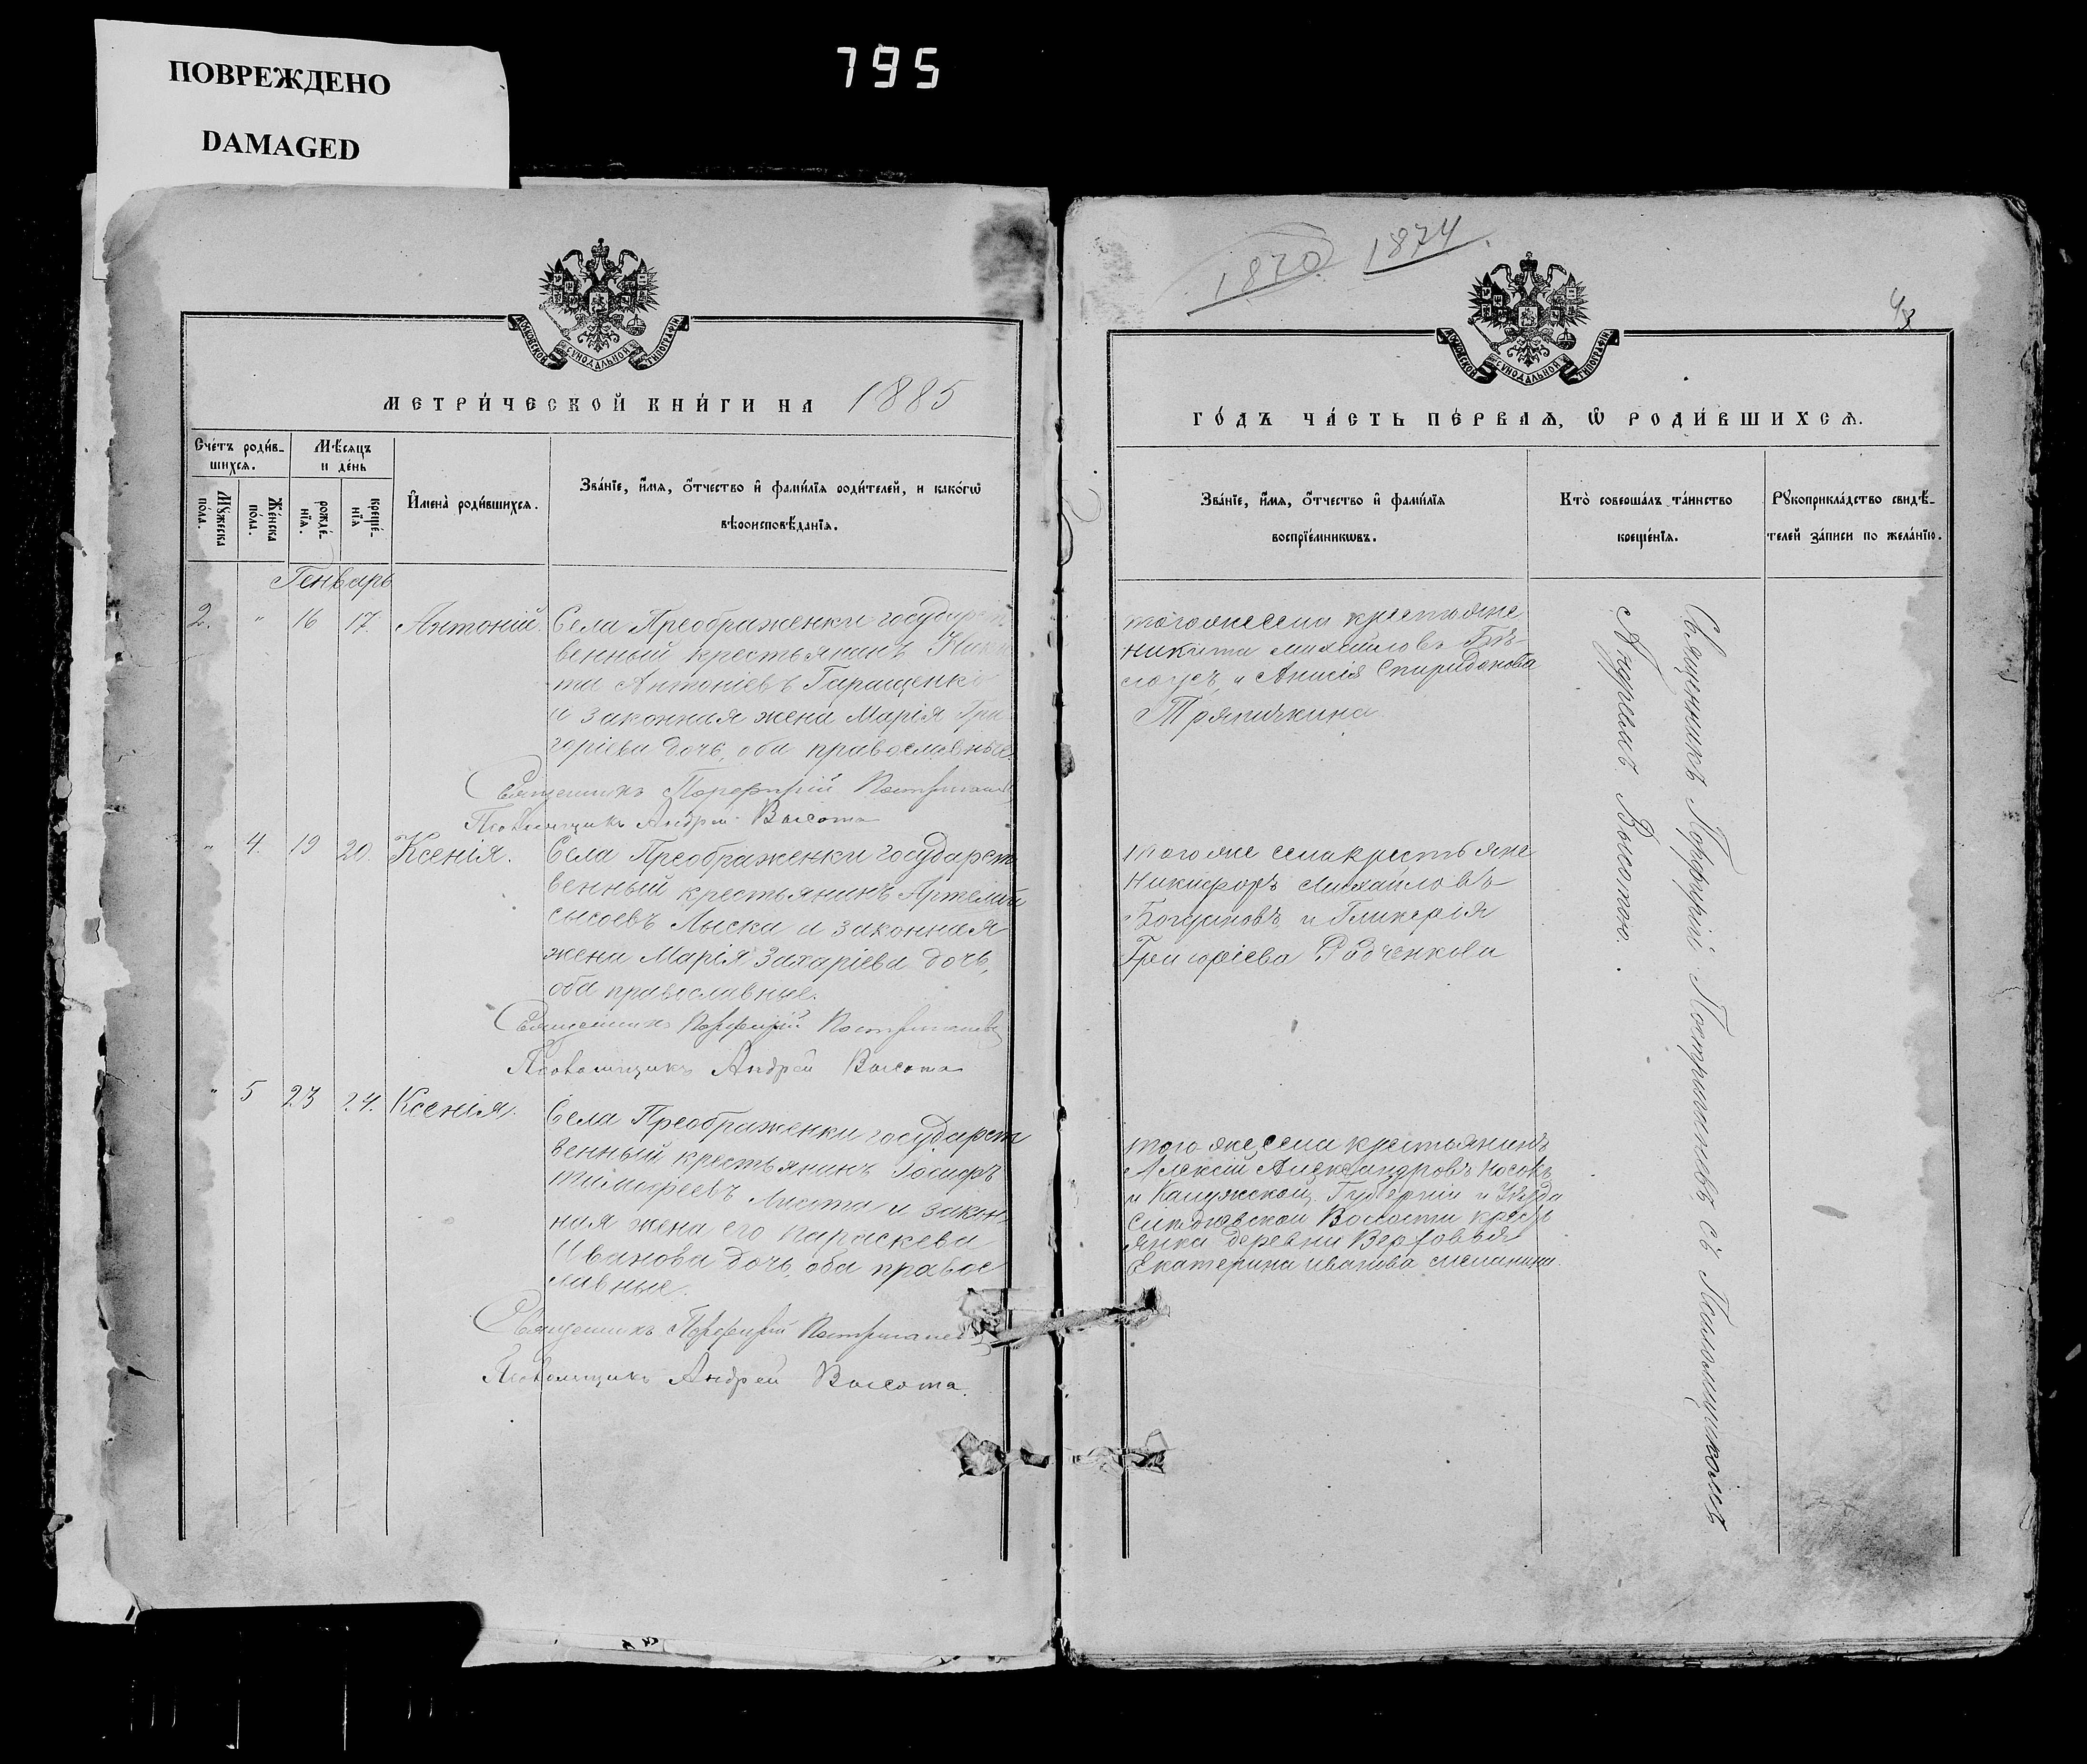 ПОВРЕЖДЕНО
DAMAGED
795
МОСКОВСКОЙ СѴНОДАЛЬНОЙ ТИПОГРАФІИ
МЕТРИ́ЧЕСКОЙ КНИ́ГИ НА 1885
Сче́тъ роди́в-
шихся.
Мѣ́сяцъ
и де́нь
Мꙋжеска
по́ла.
Же́нска
по́ла.
рожде́-
нїѧ.
креще́-
нїѧ
И҆мена̀ роди́вшихсѧ.
Зва́нїе, и҆́мѧ, ѻ҆́тчество и҆ фами́лїѧ роди́телей, и како́гѡ
вѣроисповѣ́данїѧ.
Генварь
2. " 16 17. Антоній.
Села Преображенки государст
венный крестьянинъ Ники
та Антоніевъ Гаращенко
и законная жена Марія Гри
горіева дочь, оба православные.
Священникъ Порфирій Постригачевъ
Псаломщикъ Андрей Высота
" 4. 19 20. Ксенія.
Села Преображенки государст
венный крестьянинъ Артемій
Сысоевъ Лыска и законная
жена Марія Захаріева дочь,
оба православные.
Священникъ Порфирій Постригачевъ
Псаломщикъ Андрей Высота
" 5 23 24. Ксенія.
Села Преображенки государст
венный крестьянинъ Іосифъ
Тимофеевъ и закон
ная жена его Параскева
Иванова дочь, оба правос
лавные.
Священникъ Порфирій Постригачевъ
Псаломщикъ Андрей Высота.
1870 1874
МОСКОВСКОЙ СѴНОДАЛЬНОЙ ТИПОГРАФІИ
ГО́ДЪ ЧА́СТЬ ПЕ́РВАѦ, Ѡ҆ РОДИ́ВШИХСѦ.
Зва́нїе, и҆́мѧ, ѻ҆́тчество и҆ фами́лїѧ
воспрїе́мникѡвъ.
Кто̀ соверша́лъ та́инство
креще́нїѧ.
Рꙋкоприкла́дство свидѣ́-
телей за́писи по жела́нїю.
тогоже села крестьяне
Никита Михайловъ Бѣ-
лоусъ, и Анисія Спиридонова
Тряпичкина
того же села крестьяне
Никифоръ Михайловъ
Богдановъ, и Гликерія
Григоріева Радченкова
того же села крестьянинъ
Алексій Александровъ Носокъ
и Калужской Губерніи и Уѣзда
Волости кресть
янка деревни
Екатерина Иванова
Священникъ Порфирій Постригачевъ съ Псаломщикомъ
Андреемъ Высотою.